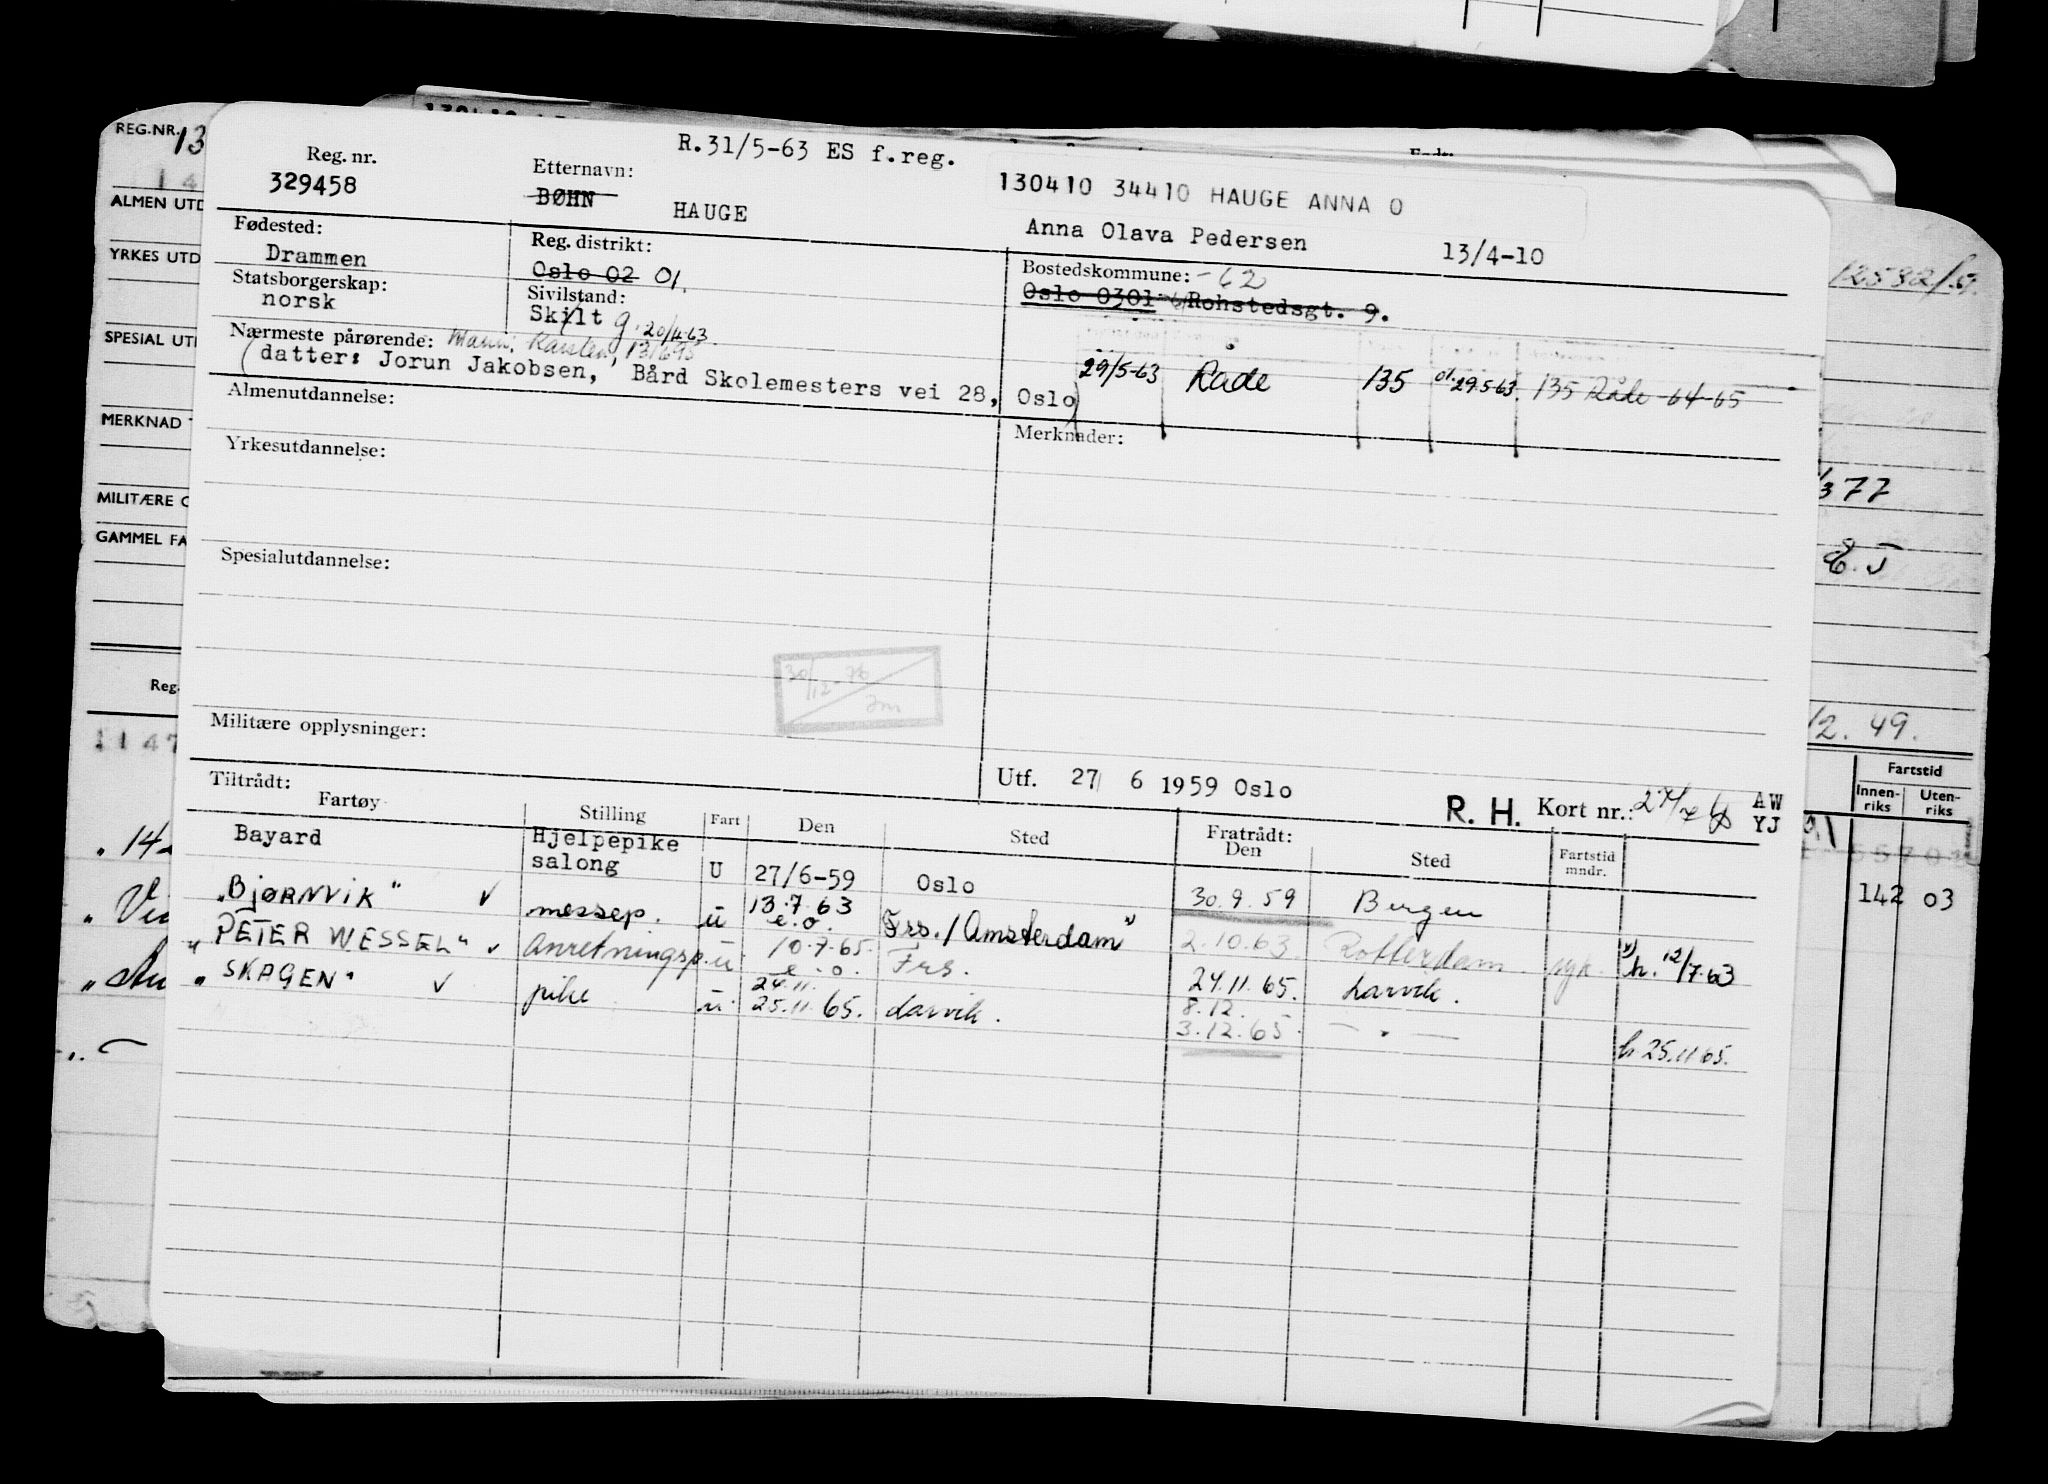 R.31/5-63 ES f.reg.
Reg. nr.
329458
Etternavn:
BØHN HAUGE
130410 34410 HAUGE ANNA O
Anna Olava Pedersen 13/4-10
Fødested:
Drammen
Reg. distrikt:
Oslo 02 01.
Bostedskommune: -62
Oslo 0301 Rohstedsgt. 9.
Statsborgerskap:
norsk
Sivilstand:
Skilt g. 20/4-63
Nærmeste pårørende: Mann: Karsten,
(datter: Jorun Jakobsen, Bård Skolemesters vei 28, Oslo)
29/5-63 Råde 135 01.29.5-63. 135 Råde -64-65
Almenutdannelse:
Merknader:
Yrkesutdannelse:
Spesialutdannelse:
30/12-76
Militære opplysninger:
Utf. 27 6 1959 Oslo
R. H. Kort nr.:
AW
YJ
Tiltrådt:
Fartøy Stilling Fart Den Sted Fratrådt: Den Sted Fartstid mndr.
Bayard Hjelpepike salong U 27/6-59 Oslo 30.9.59 Bergen
"BJØRNVIK" messep. u 13.7.63 e.o. Frs./Amsterdam 2.10.63. Rotterdam syk. h. 12/7.63
"PETER WESSEL" Anretningsp. u. 10.7.65. e.o. Frs. 24.11.65. Larvik.
"SKAGEN" pike u. 24.11. 25.11.65. Larvik. 8.12. 3.12.65. — " — h 25.11.65.
REG.NR. 13
ALMEN UTD
YRKES UTD
SPESIAL UT
MERKNAD
MILITÆRE O
GAMMEL FA
Reg.
1147
E.J
12.49.
Fartstid
Innen-riks Uten-riks
142 03